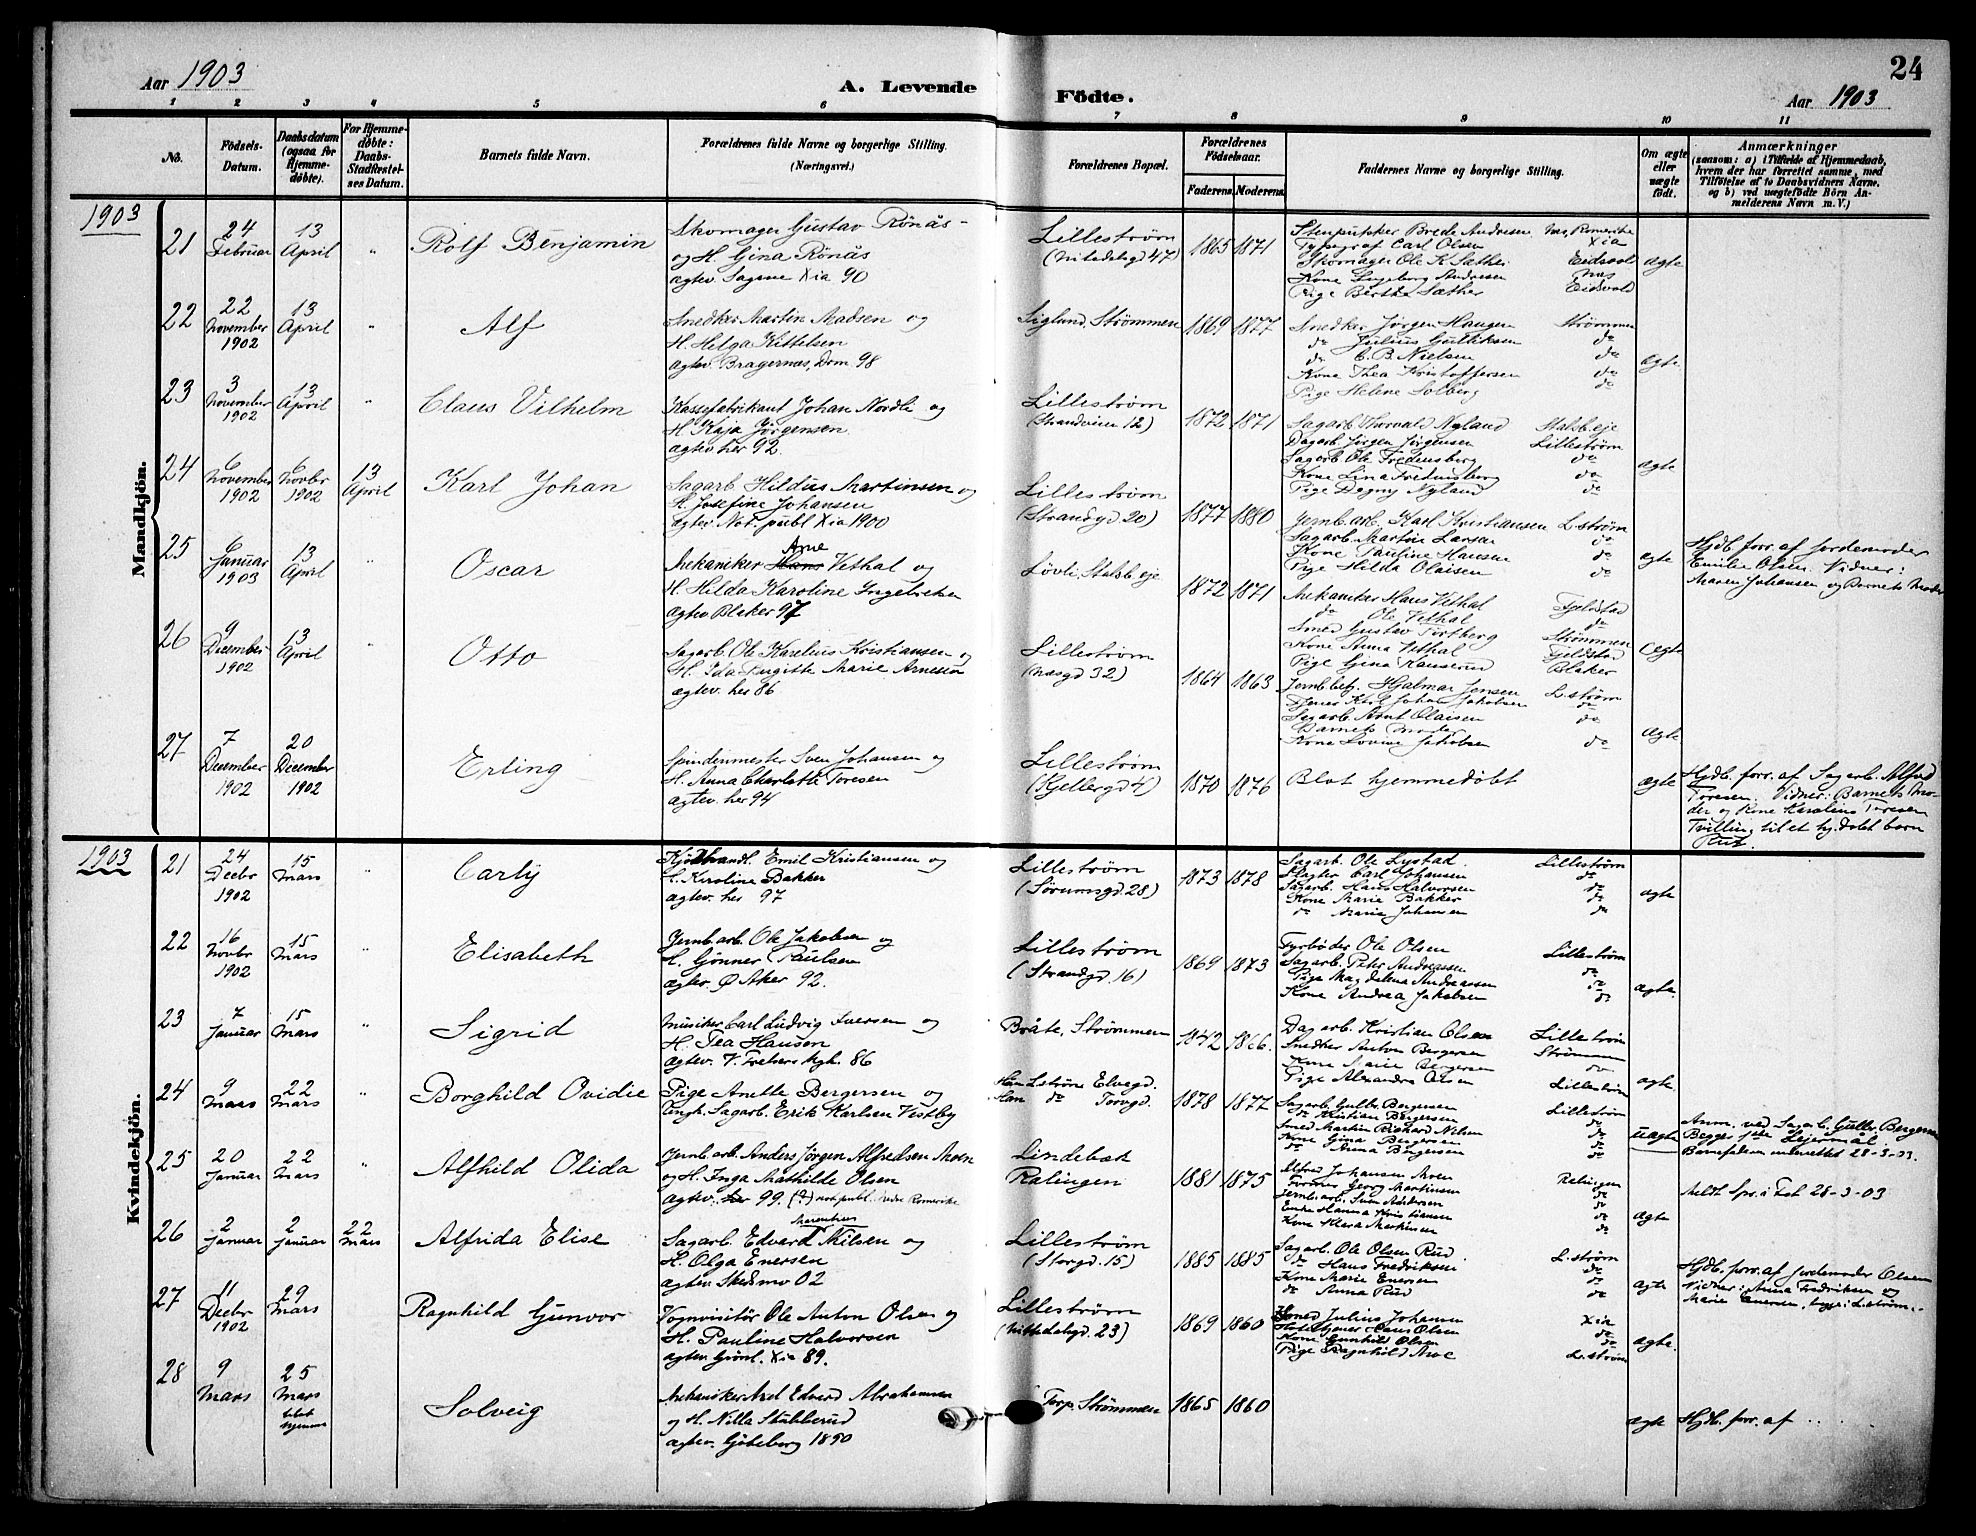 24
Aar 1903
A. Levende Födte.
Aar 1903
1 2 3 4 5 6 7 8 9 10 11
No.
Födsels-Datum.
Daabsdatum (ogsaa for Hjemme-döbte).
For Hjemme-döbte: Daabs-Stadfæstel-ses Datum.
Barnets fulde Navn.
Forældrenes fulde Navne og borgerlige Stilling. (Næringsvei.)
Forældrenes Bopæl.
Forældrenes Födselsaar.
Faderens. Moderens.
Faddernes Navne og borgerlige Stilling.
Om ægte eller uægte födt.
Anmærkninger
(saasom: a) i Tilfælde af Hjemmedaab, hvem der har forrettet samme, med Tilföielse af to Daabsvidners Navne, og b) ved uægtefödte Börn An-melderens Navn m. V.)
Mandkjön.
1903
21 24 Februar 13 April " Rolf Benjamin
Skomager Gustav Rönås
og H. Gina Rönås
ægtev. Sagene Xia 90
Lilleström
(Nitedalsgd 47)
1865 1871
Typograf Carl Olsen Xia
Skomager Ole K. Sæther Eidsvold
Kone Ingeborg Andresen
Pige Berthe Sæther Eidsvold
ægte
22 22 November 1902 13 April " Alf
Snedker Martin Madsen og
H. Helga Kittelsen
ægtev. Bragernæs, Drm. 98
Siglund, Strömmen
1869 1877
Snedker Jörgen Haugen Strömmen
do Julius Gulliksen do
do C. B. Nielsen do
Kone Thea Kristoffersen do
Pige Helene Solberg do
ægte
23 3 November 1902 13 April " Claus Vilhelm
Kassefabrikant Johan Nordli og
H. Kaja Jörgensen
ægtev. her 92
Lilleström
(Strandveien 12)
1872 1871
Sagarb. Thorvald Nyland Stalsb. eje
Dagarb. Jörgen Jörgensen Lilleström
Sagarb. Ole Fredensborg do
Kone Lina Fredensborg do
Pige Dagny Nyland do
ægte
24 6 November 1902 6 Novbr 1902 13 April Karl Johan
Sagarb. Hildus Martinsen og
H. Josefine Johansen
ægtev. Not. publ Xia 1900
Lilleström
(Strandgd. 20)
1877 1880
Jernb. arb. Karl Kristiansen L. ström
Sagarb. Martin Larsen do
Kone Pauline Hansen do
Pige Hilda Olaisen do
ægte
Hjdb. forr. af jordemoder
Emilie Olsen. Vidner:
Maren Johansen og Barnets Moder
25 6 Januar 1903 13 April " Oscar
Arne
Mekaniker Hans Vethal og
H. Hilda Karoline Ingebretsen
ægtev. Blaker 97
Lövli, Stalsb. eje
1872 1871
Mekaniker Hans Vethal Fjeldstad
do Ole Vethal do
Smed Gustav Torberg Strömmen
Kone Anna Vethal Fjeldstad
Pige Gina Hauserud Blaker
ægte
26 9 December 1902 13 April " Otto
Sagarb. Ole Karelius Kristiansen og
H. Ida Birgitte Marie Arnesen
ægtev. her 86
Lilleström
(Næsgd 32)
1864 1863
Jernb. betj. Hjalmar Jensen L. ström
Karl Johan Jakobsen do
Sagarb. Arnt Olaisen do
Barnets Moder
Kone Lovise Jakobsen do
ægte
27 7 December 1902 20 December 1902 Erling
Spindemester Sven Johansen og
H. Anna Charlotte Toresen
ægtev. her 94
Lilleström
(Kjellergd 4)
1870 1876
Blot hjemmedöbt
ægte
Hjdb. forr. af Sagarb. Alfred
Toresen. Vidner: Barnets Mo-
der og Kone Karoline Toresen
Tvilling til et hj.döbt barn
Rut.
Kvindekjön.
1903
21 24 Decbr 1902 15 Mars " Carly
Emil Kristiansen og
H. Karoline Bakker
ægtev. her 97
Lilleström
(Sörumsgd. 28)
1873 1878
Sagarb. Ole Lystad Lilleström
Slagter Carl Johansen do
Sagarb. Hans Halvorsen do
Kone Marie Bakker do
do Marie Johansen do
ægte
22 16 Novbr 1902 15 Mars " Elisabeth
Jernb. arb. Ole Jakobsen og
H. Gönner Paulsen
ægtev. Ø Aker 92.
Lilleström
(Strandgd. 16)
1869 1873
Fyrböder Ole Olsen Lilleström
Sagarb. Peter Andreassen do
Pige Magdalena Andreassen do
Kone Andrea Jakobsen do
ægte
23 7 Januar 15 Mars " Sigrid
Musiker Carl Ludvig Iversen og
H. Pea Hansen
ægtev. V. Frelsers Mgh. 86
Bråte, Strömmen
1842 1866.
Dagarb. Kristian Olsen Lilleström
Snedker Anton Bergersen Strömmen
Kone Marie Bergersen do
Pige Alexandra Olsen Lilleström
ægte
24 9 Mars 22 Mars " Borghild Ovidie
Pige Anette Bergersen og
Ungk. Sagarb. Erik Karlsen Vestby
Hun L.ström Elvegd.
Han do Torvgd.
1878 1877
Sagarb. Gulbr. Bergersen Lilleström
do Kristian Bergersen do
Smed Martin Richard Nilsen do
Kone Gina Bergersen do
do Anna Bergersen do
uægte
Anm. ved Sagarb. Gulbr. Bergersen
Begges 1ste Leiermål.
Barnefaderen underrettet 28-3-03.
25 20 Januar 22 Mars " Alfhild Olida
Jernb. arb. Anders Jörgen Alfredsen Moen
og H. Inga Mathilde Olsen
ægtev. her 99. (?) not. publ. nedre Romerike
Lindebæk
Ralingen
1881 1875
Alfred Johansen Moen Relingen
Georg Martinsen do
Jernb. arb. Sven Andersen do
Enke Hanna Kristiansen do
Kone Klara Martinsen do
ægte
Meldt Spr. i Fet 28-3-03
26 2 Januar 2 Januar 22 Mars Alfrida Elise
Marentius
Sagarb. Edvard Nilsen og
H. Olga Enersen
ægtev. Skedsmo 02
Lilleström
(Storgd. 15)
1885 1885
Sagarb. Ole Olsen Rud L. ström
do Hans Fredriksen do
Kone Marie Enersen do
do Anna Rud do
ægte
Hjdb. forr. af jordemoder Olsen
Vidner: Anna Fredriksen og
Marie Enersen, begge i L.ström.
27 11 Decbr 1902 29 Mars Ragnhild Gunvor
Vognvisitör Ole Anton Olsen og
H. Pauline Halvorsen
ægtev. Grönl. Xia 89.
Lilleström
(Nittedalsgd. 23)
1869 1860
Smed Julius Johansen Xia
Hans Olsen do
Kone Gunhild Olsen do
Pige Ragnhild Moe L. ström
ægte.
28 9 Mars 25 Mars blot hjemme Solveig
Mekaniker Axel Edvard Abrahamsen
og H. Nilla Stubberud
ægtev. Göteborg 1890
Torp, Strömmen
1865 1860
ægte
Hjdb. forr. af